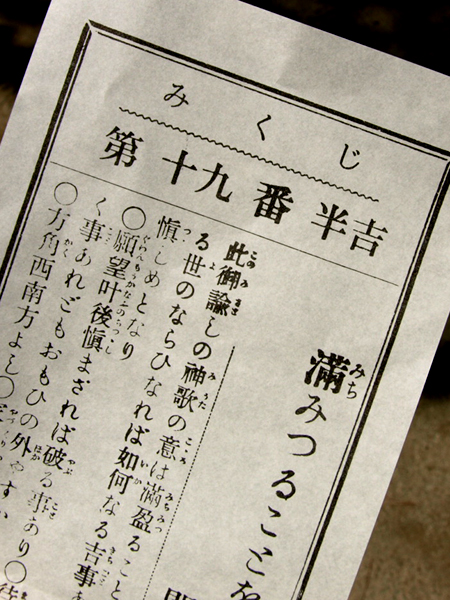 みくじ
第十九番 半吉
満みつることを
此御諭しの神歌の意は満盈ること
る世のならひなれば如何なる吉事
慎しめとなり
○願望叶後慎まざれば破る事あり○
く事あれどもおもひの外やすか
○方角西南方よし○